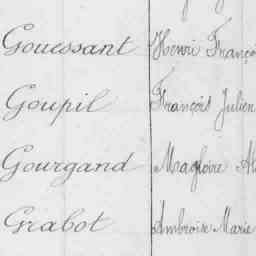 Gouessant Henri Franço
Goupil François Julien
Gourgand Magloire Al
Grabot Ambroise Marie